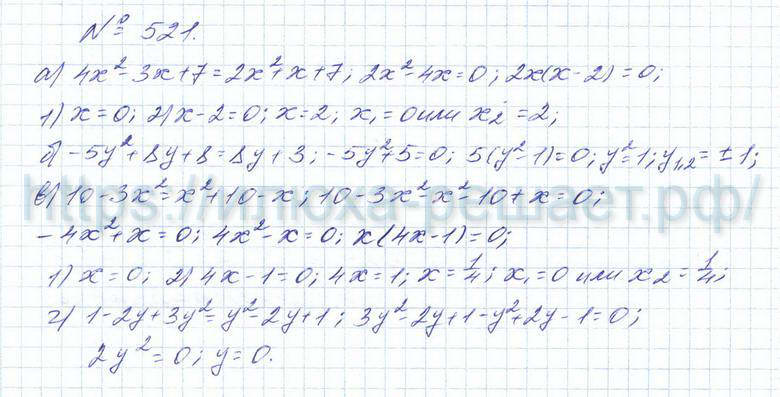 № 521.
а) 4x² - 3x + 7 = 2x² + x + 7; 2x² - 4x = 0; 2x(x - 2) = 0;
1) x = 0; 2) x - 2 = 0; x = 2; x₁ = 0 или x₂ = 2;
б) -5y² + 8y + 8 = 8y + 3; -5y² + 5 = 0; 5(y² - 1) = 0; y² = 1; y₁,₂ = ± 1;
в) 10 - 3x² = x² + 10 - x; 10 - 3x² - x² - 10 + x = 0;
https://илюха-решает.рф/
-4x² + x = 0; 4x² - x = 0; x(4x - 1) = 0;
1) x = 0; 2) 4x - 1 = 0; 4x = 1; x = 1/4; x₁ = 0 или x₂ = 1/4;
г) 1 - 2y + 3y² = y² - 2y + 1; 3y² - 2y + 1 - y² + 2y - 1 = 0;
2y² = 0; y = 0.